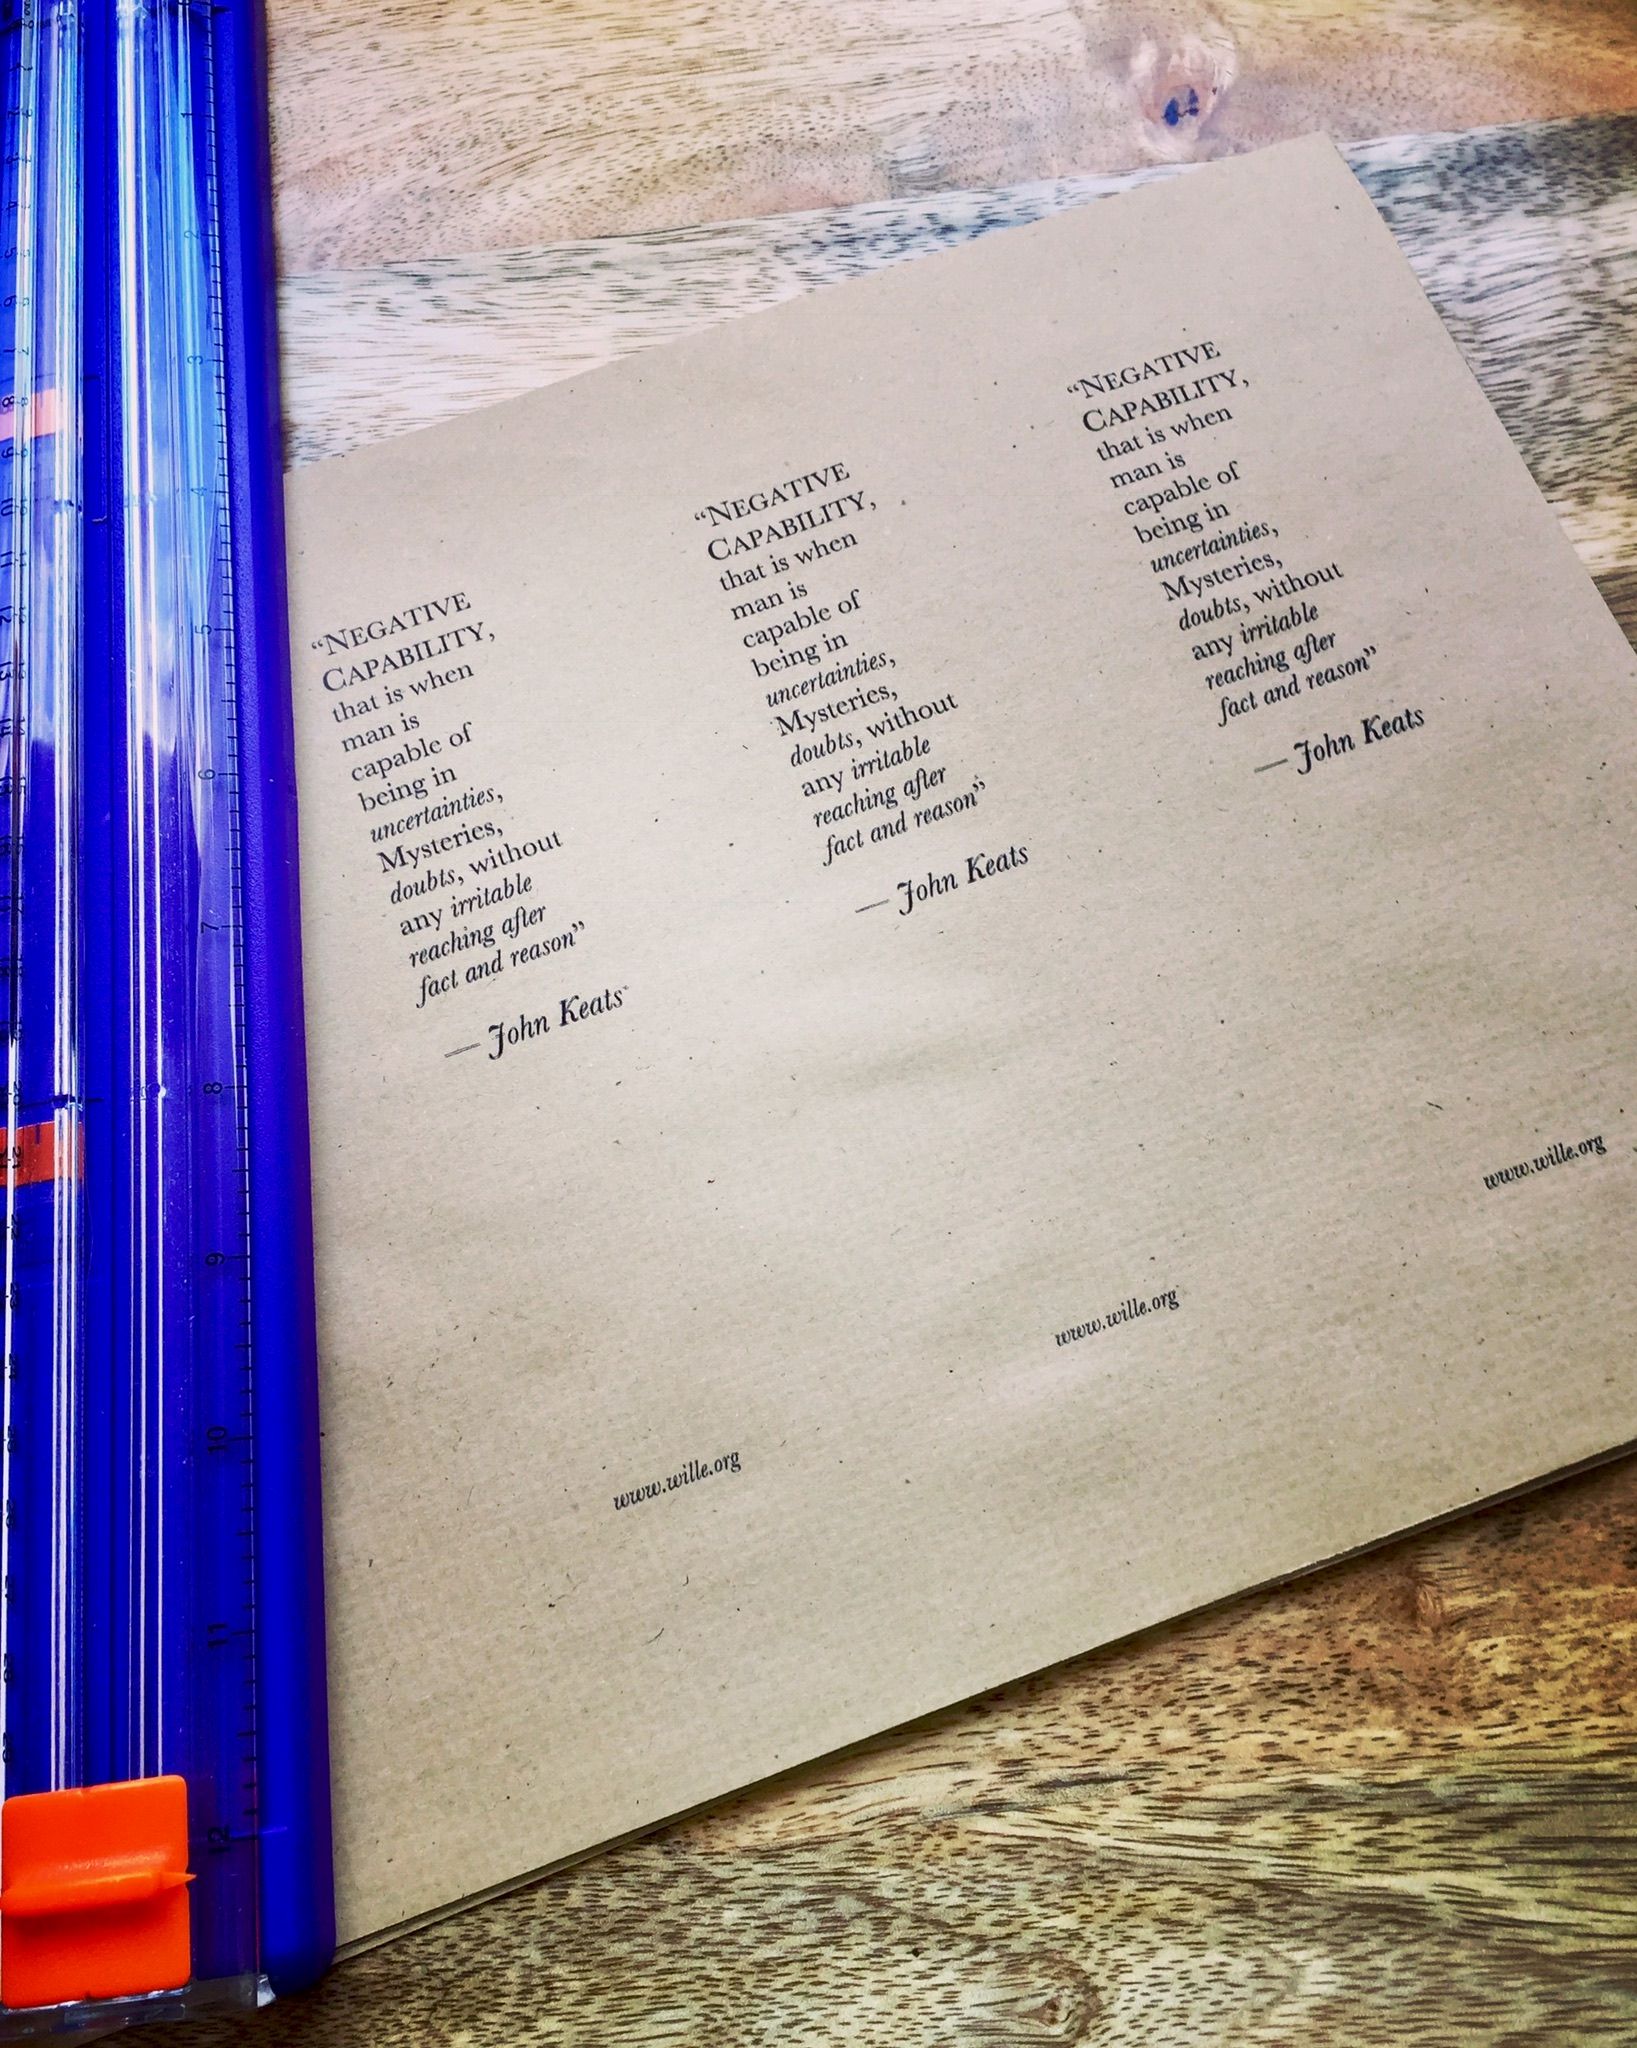 “NEGATIVE
CAPABILITY,
that is when
man is
capable of
being in
uncertainties,
Mysteries,
doubts, without
any irritable
reaching after
fact and reason”
— John Keats
www.wille.org
“NEGATIVE
CAPABILITY,
that is when
man is
capable of
being in
uncertainties,
Mysteries,
doubts, without
any irritable
reaching after
fact and reason”
— John Keats
www.wille.org
“NEGATIVE
CAPABILITY,
that is when
man is
capable of
being in
uncertainties,
Mysteries,
doubts, without
any irritable
reaching after
fact and reason”
— John Keats
www.wille.org
1
2
3
4
5
6
7
8
9
10
11
12